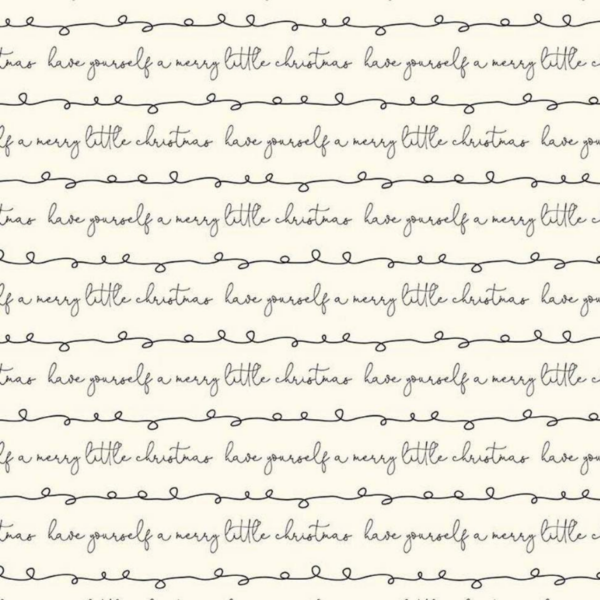 tmas have yourself a merry little christmas have yourself a merry little c
lf a merry little christmas have yourself a merry little christmas have you
tmas have yourself a merry little christmas have yourself a merry little c
lf a merry little christmas have yourself a merry little christmas have yo
tmas have yourself a merry little christmas have yourself a merry little c
lf a merry little christmas have yourself a merry little christmas have yo
tmas have yourself a merry little christmas have yourself a merry little c